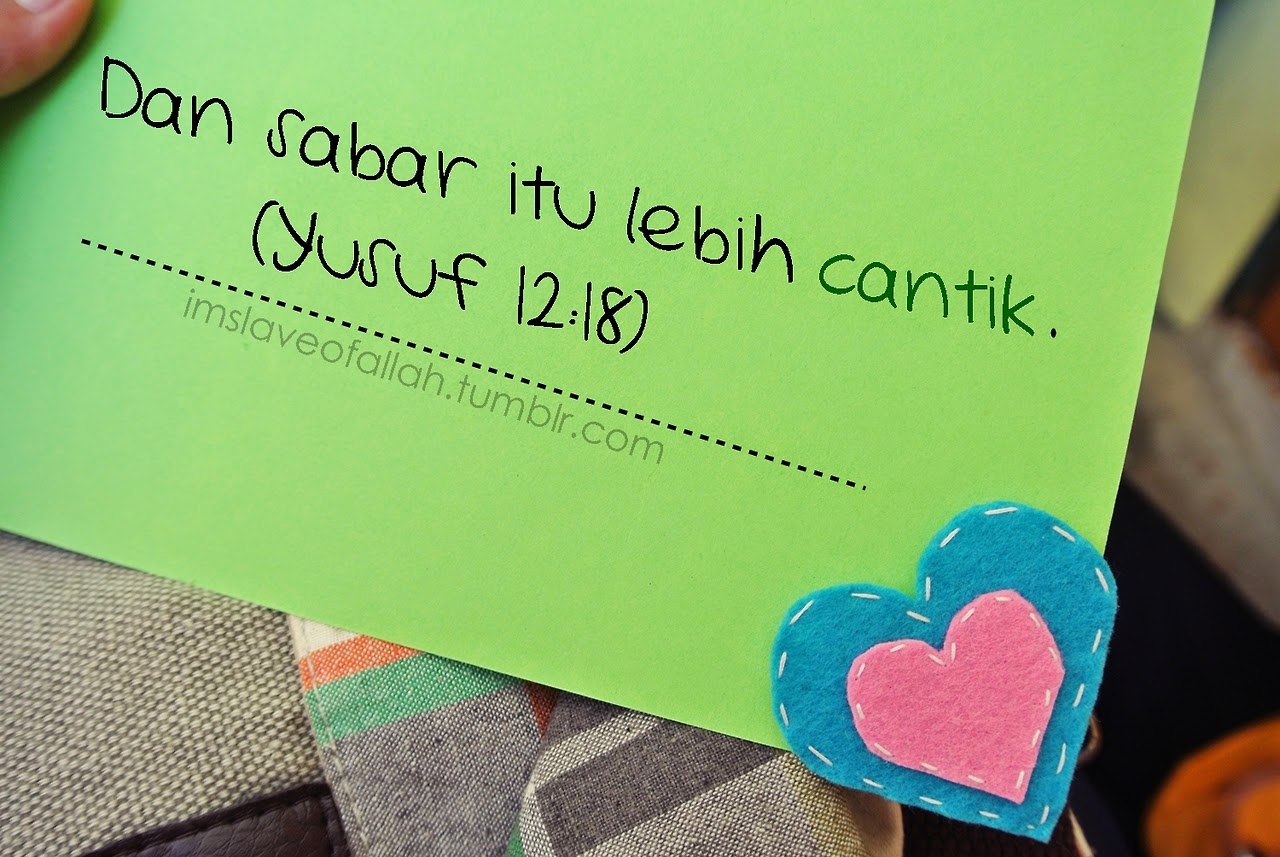 Dan sabar itu lebih cantik.
(Yusuf 12:18)
imslaveofallah.tumblr.com